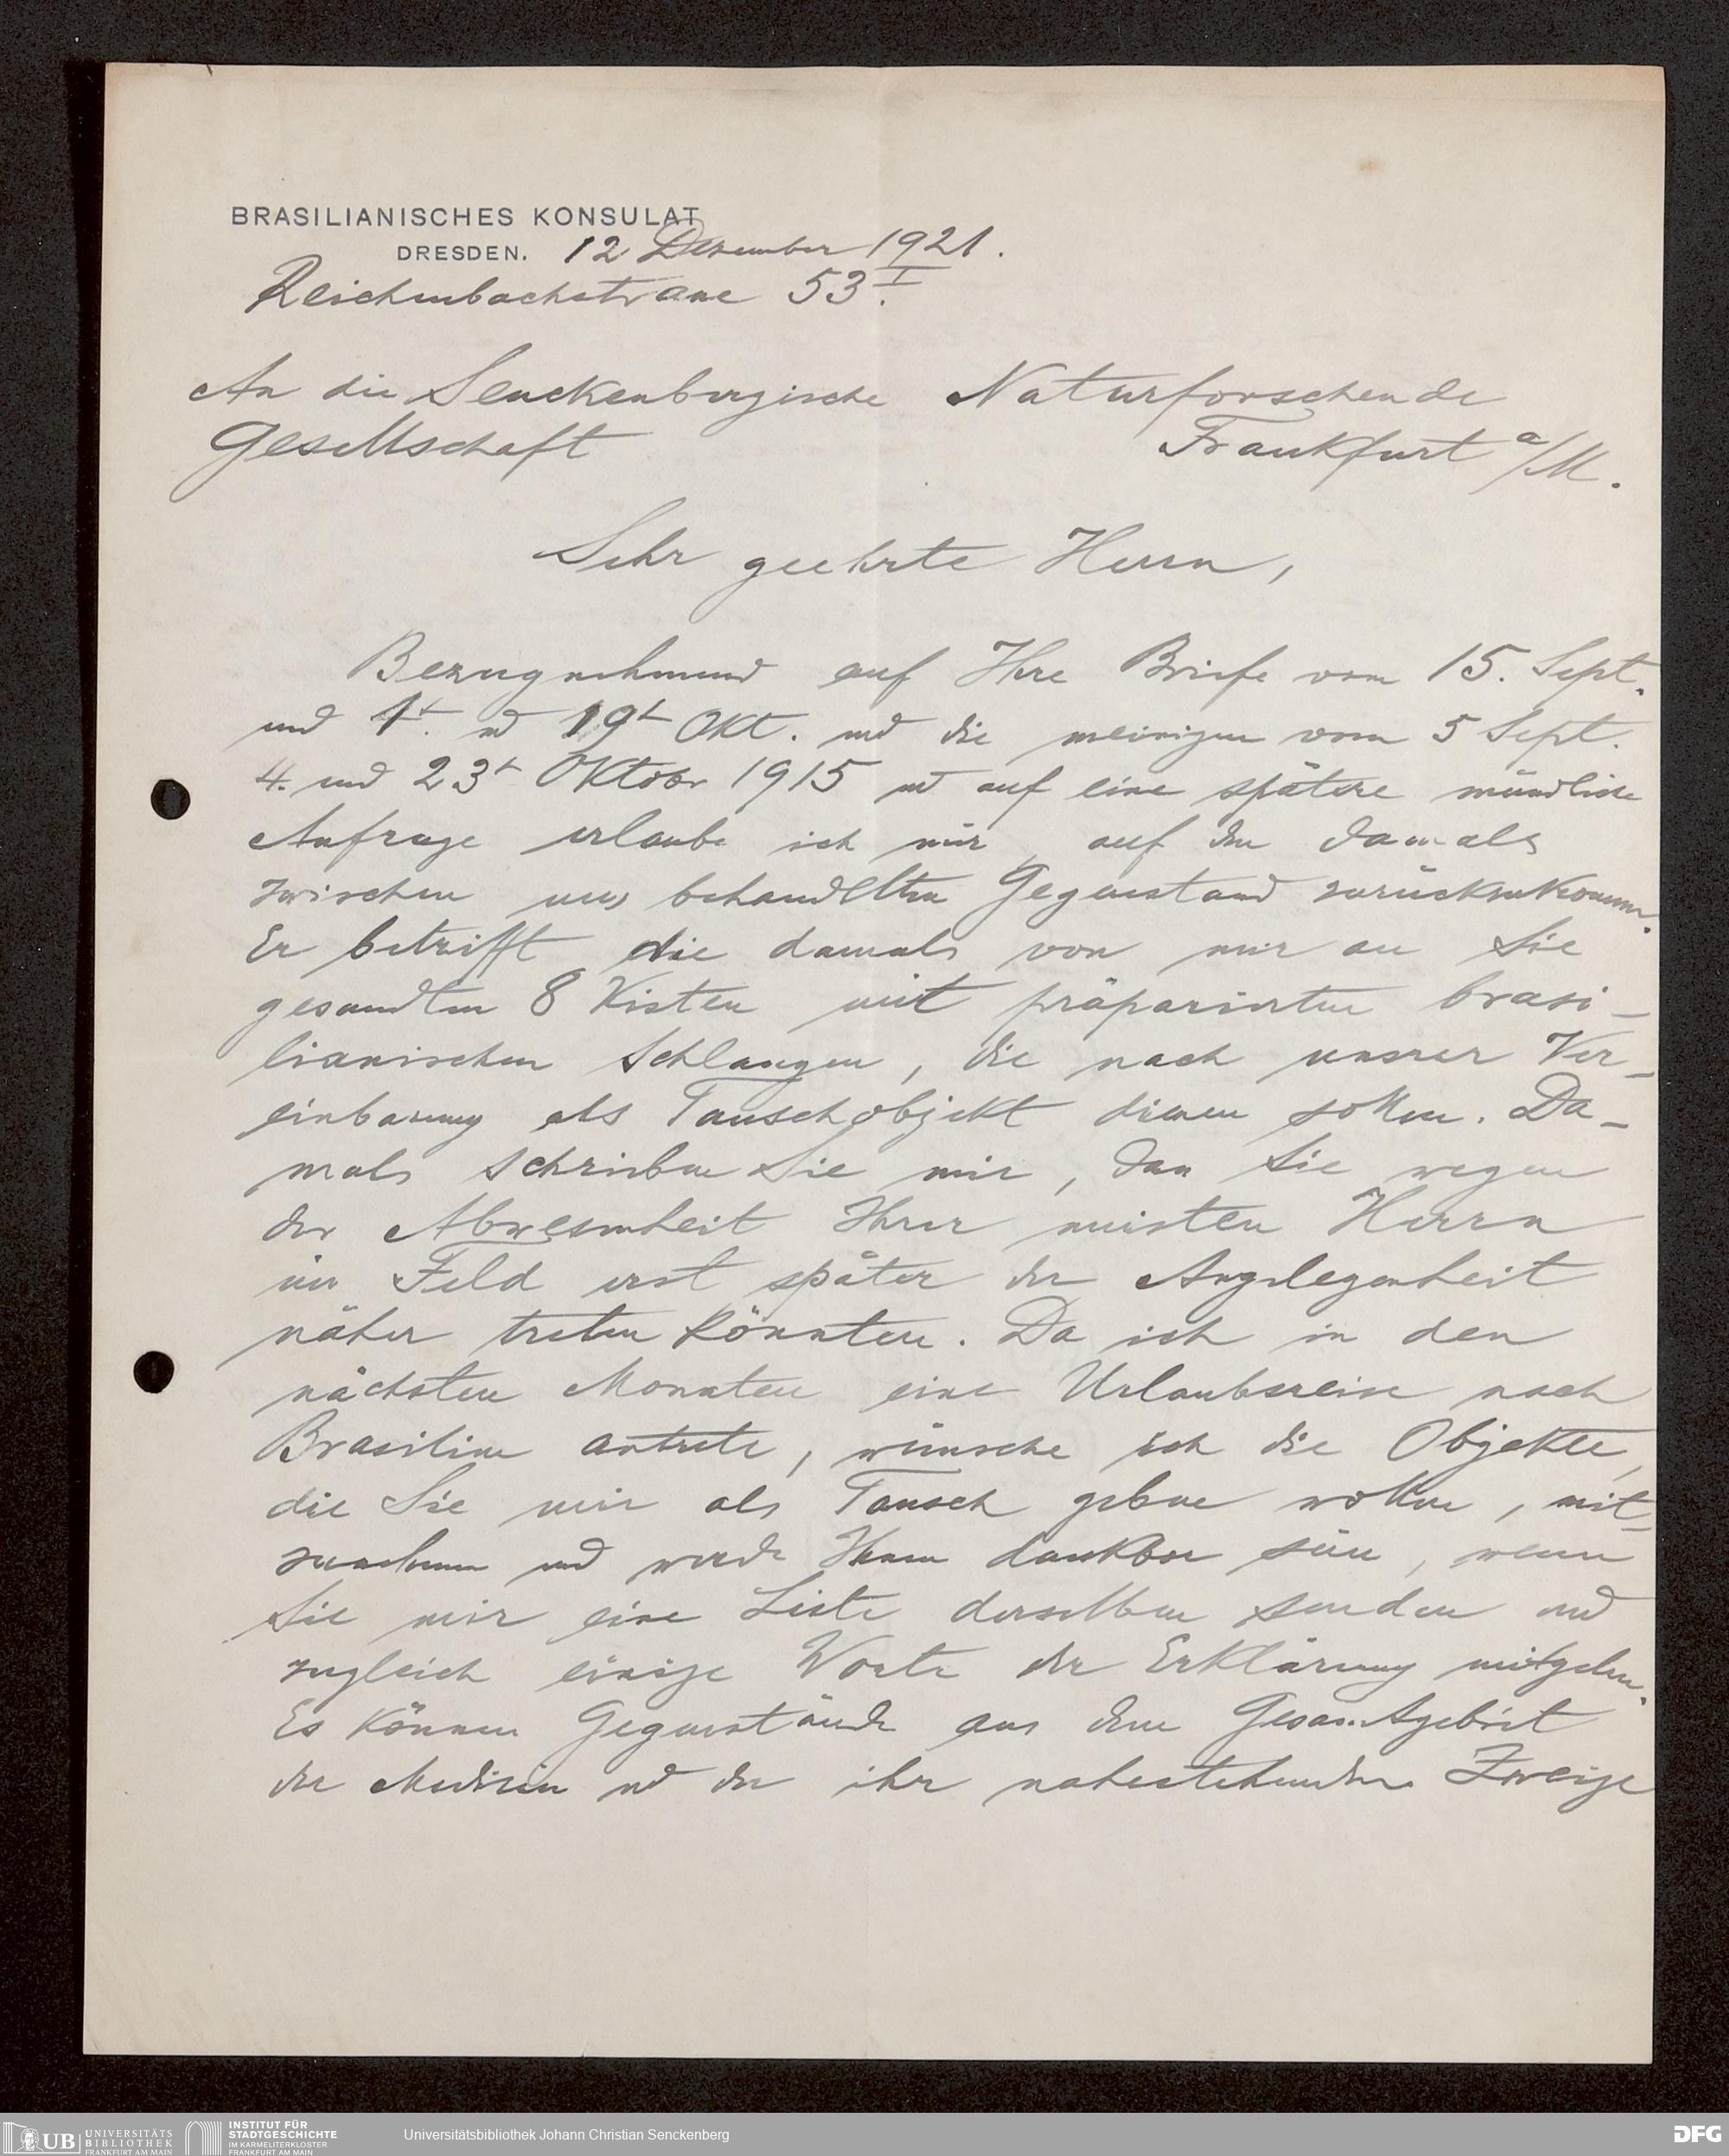 BRASILIANISCHES KONSULAT
DRESDEN. 12 Dezember 1921.
Reichenbachstrasse 53 I.
An die Senckenbergische Naturforschende
Gesellschaft Frankfurt a/M.
Sehr geehrte Herrn,
Bezugnehmend auf Ihre Briefe vom 15. Sept.
und 1t. ud 19t Okt. und die meinigen vom 5 Sept.
4. und 23t Oktobr 1915 ud auf eine spätere mündliche
Anfrage erlaube ich mir, auf den damals
zwischen uns behandelten Gegenstand zurückzukommen.
Er betrifft die damals von mir an Sie
gesandten 8 Kisten mit präparirten brasi-
lianischen Schlangen, die nach unsrer Ver-
einbarung als Tauschobjekt dienen sollen. Da-
mals schrieben Sie mir, dass Sie wegen
der Abwesenheit Ihrer meisten Herrn
im Feld erst später der Angelegenheit
näher treten könnten. Da ich in den
nächsten Monaten eine Urlaubsreise nach
Brasilien antrete, wünsche ich die Objekte,
die Sie mir als Tausch geben wollen, mit-
zunehmen und werde Ihnen dankbar sein, wenn
Sie mir eine Liste derselben senden und
zugleich einige Worte der Erklärung mitgeben.
Es können Gegenstände aus dem Gesamtgebiet
der Medizin ud der ihr nahestehenden Zweige
UB UNIVERSITÄTS
BIBLIOTHEK
FRANKFURT AM MAIN
INSTITUT FÜR
STADTGESCHICHTE
IM KARMELITERKLOSTER
FRANKFURT AM MAIN
Universitätsbibliothek Johann Christian Senckenberg
DFG